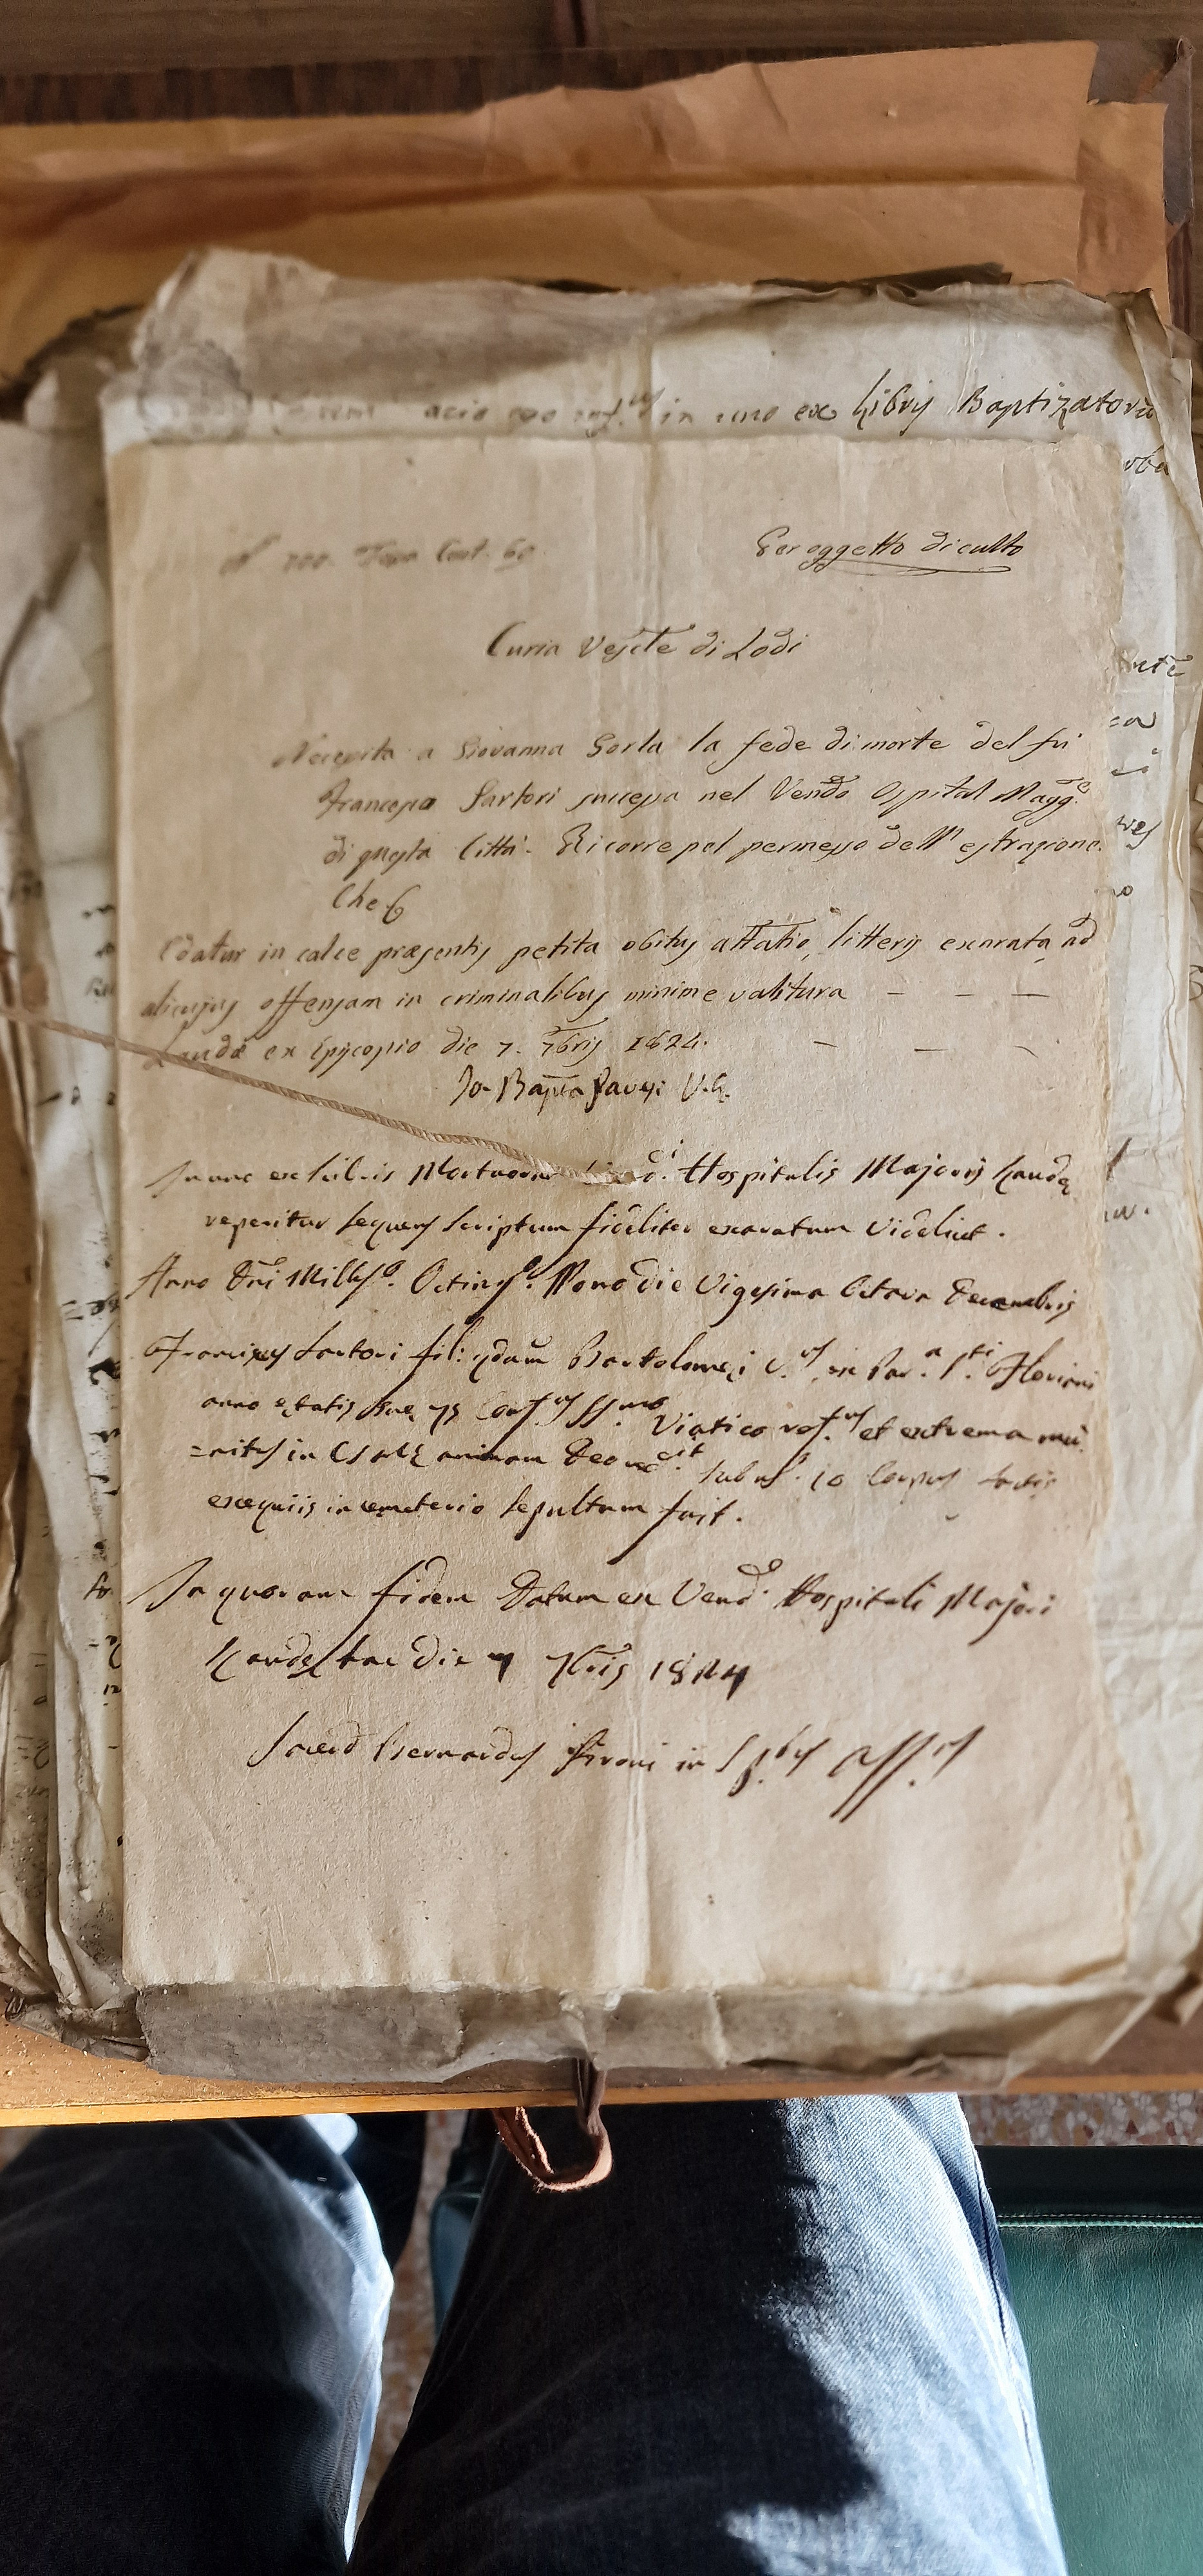 in uno ex Libris Baptizatorū
N 200. Tassa Cent. 60
Per oggetto di culto
Curia Vescle di Lodi
Necessita a Giovanna Gorla la fede di morte del fu
Francesco Sartori successa nel Vendo Ospital Magge
di questa Città. Ricorre pel permesso dell' estrazione.
Che
Edatur in calce præsentis petita obitus attatio, litteris exarata, ad
alicujus offensam in criminalibus minime valitura — — —
Laudæ ex Episcopio die 7. 7bris 1824. — — —
Jo. Bapta Pavesi V.G.
ex Libris Mortuorum Hospitalis Majoris Laudę
reperitur sequens scriptum fideliter exaratum videlicet.
Anno Dni Millso. Octingo. Nono die Vigesima Octava Decembris
Franciscus Sartori fil: qdam Bartolomei in Par.a S.ti Floriani
anno ętatis suę 75 Conf.us SS.mo Viatico ref.us et extrema mū
=nitus in animam Deo Corpus factis
exequiis in cemeterio sepultum fuit.
In quorum fidem Datum ex Vendo Hospitali Majori
Laudę hac die 7 7bris 1824
Sacerd Bernardus in